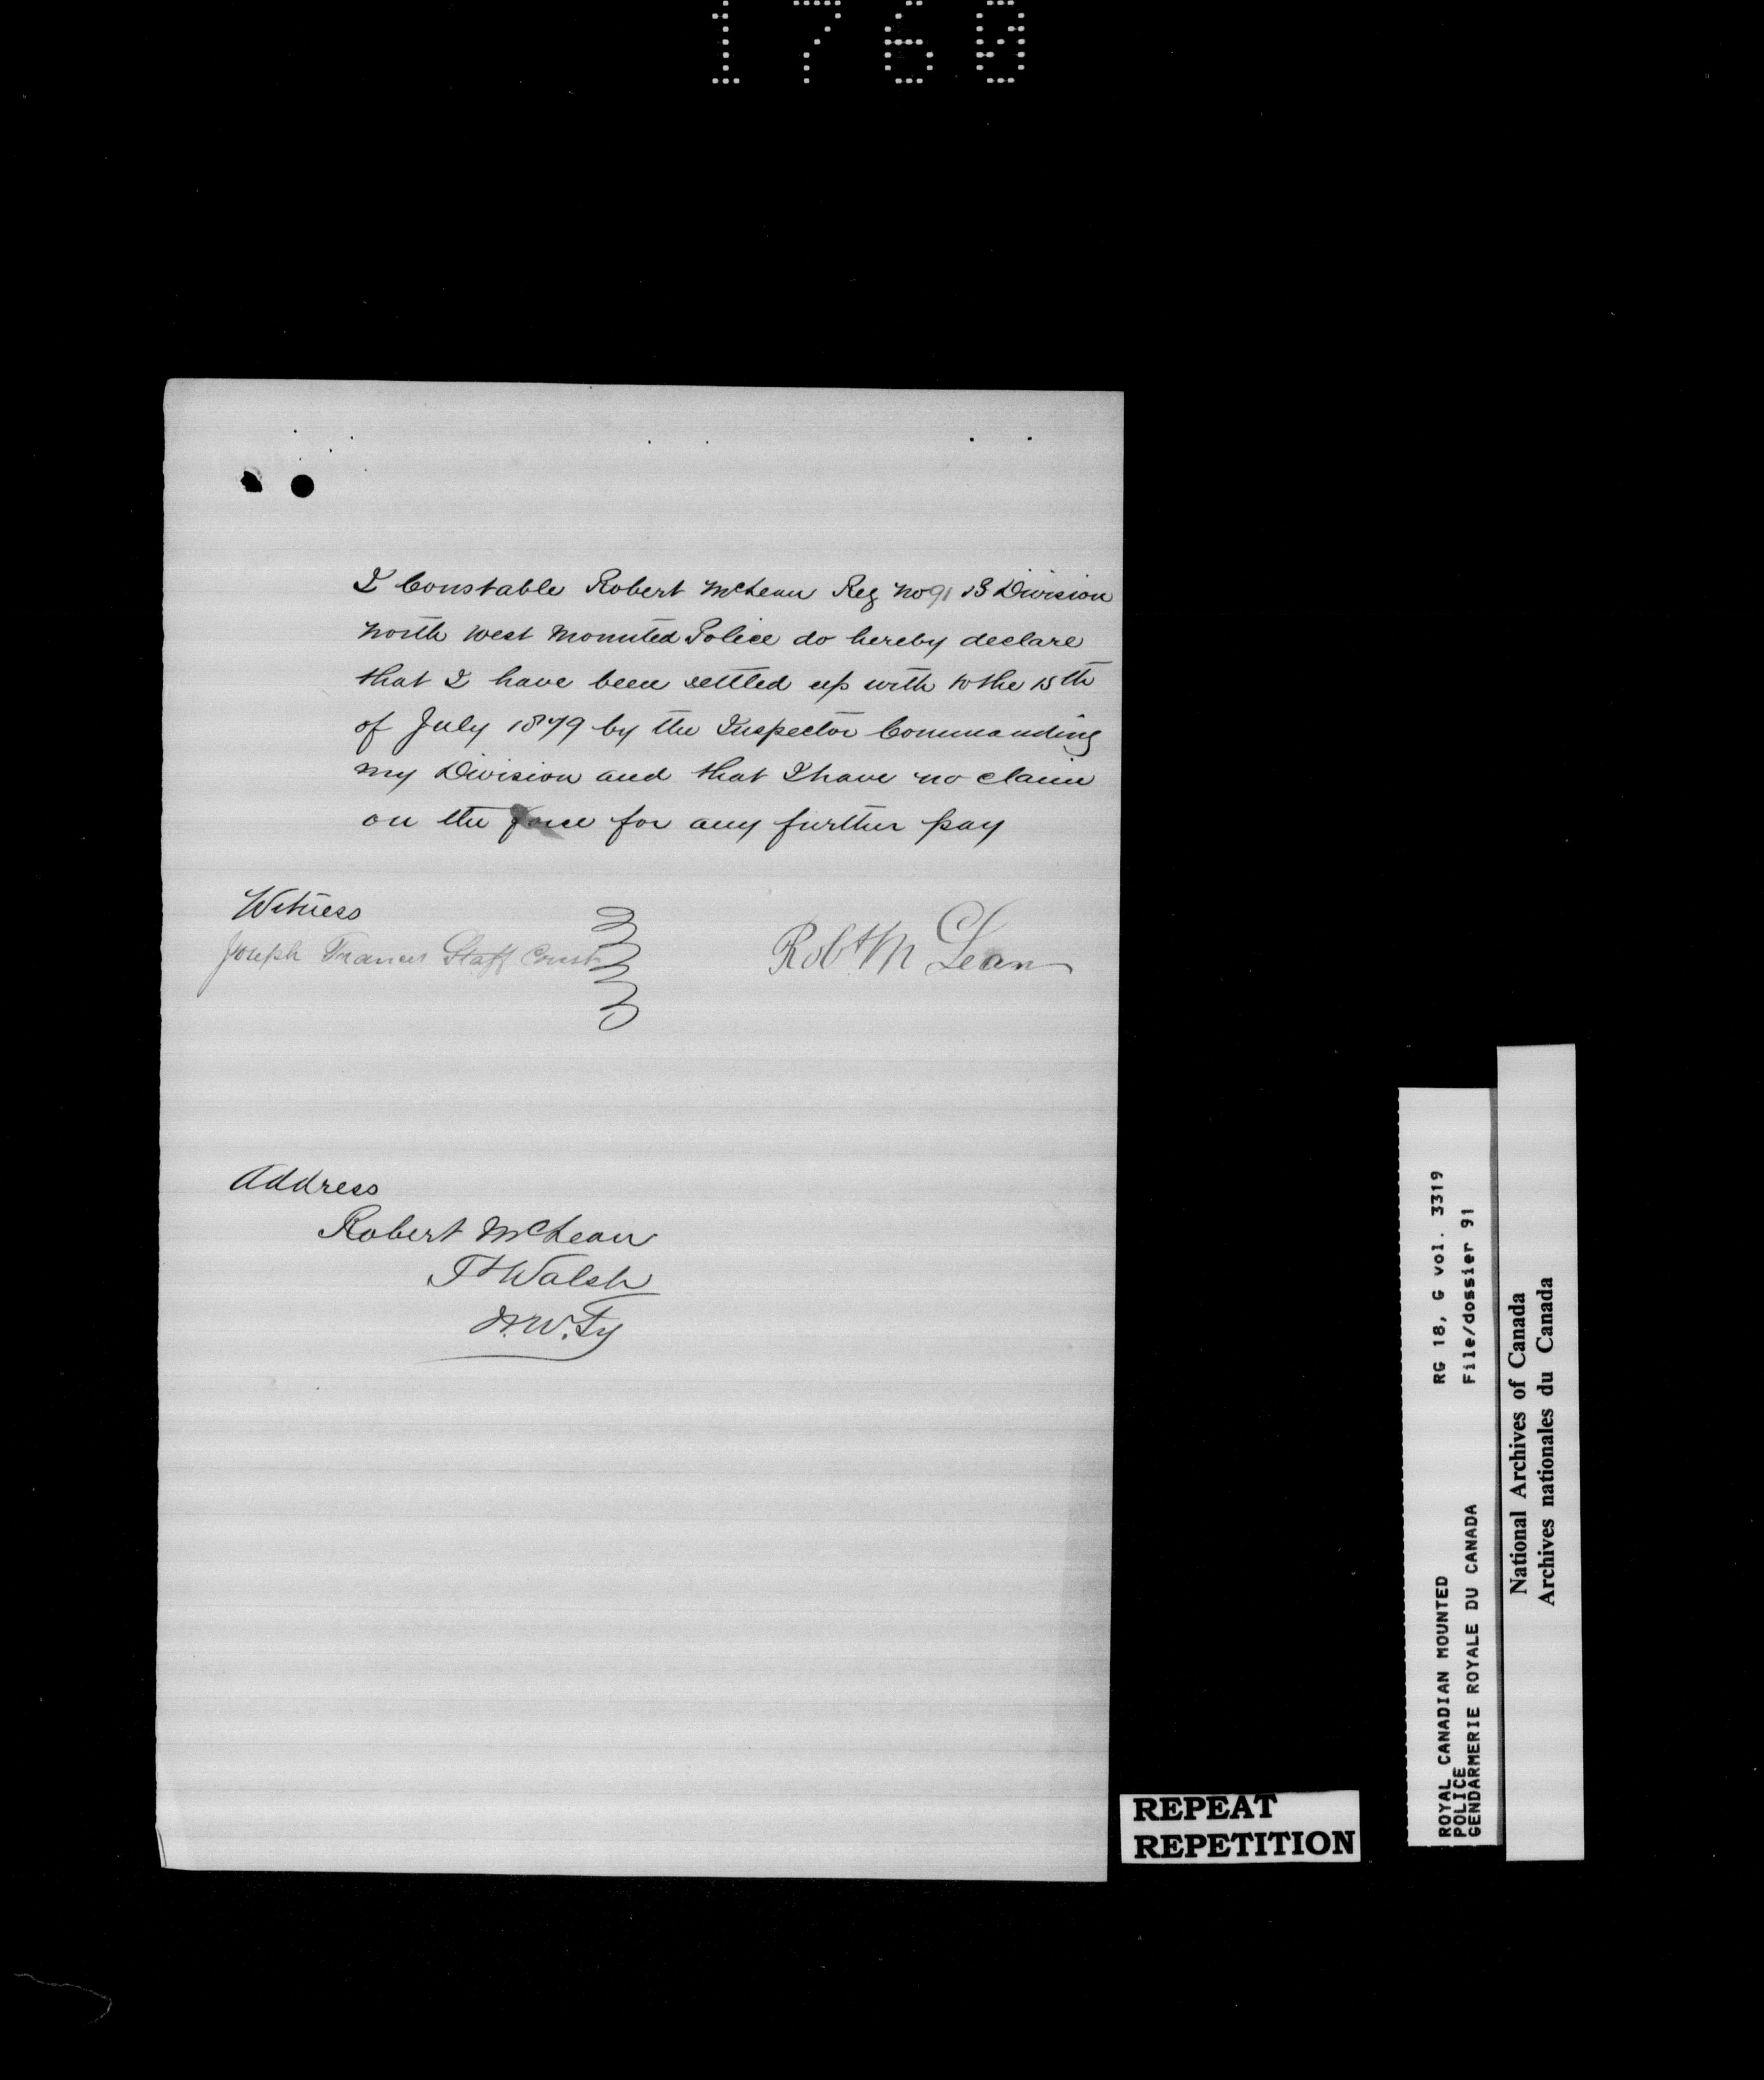 1760
I Constable Robert McLean Reg No 91 B Division
North West Mounted Police do hereby declare
that I have been settled up with to the 15th
of July 1879 by the Inspector Commanding
my Division and that I have no claim
on the force for any further pay
Witness
Joseph Francis Staff Const
Robt McLean
Address
Robert McLean
Ft Walsh
N.W.Ty
REPEAT
REPETITION
ROYAL CANADIAN MOUNTED
POLICE
GENDARMERIE ROYALE DU CANADA
RG 18, G vol. 3319
File/dossier 91
National Archives of Canada
Archives nationales du Canada